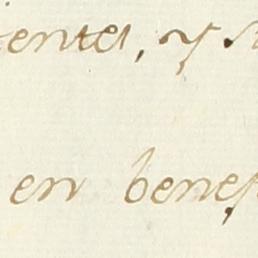 ientes, y s
en benef